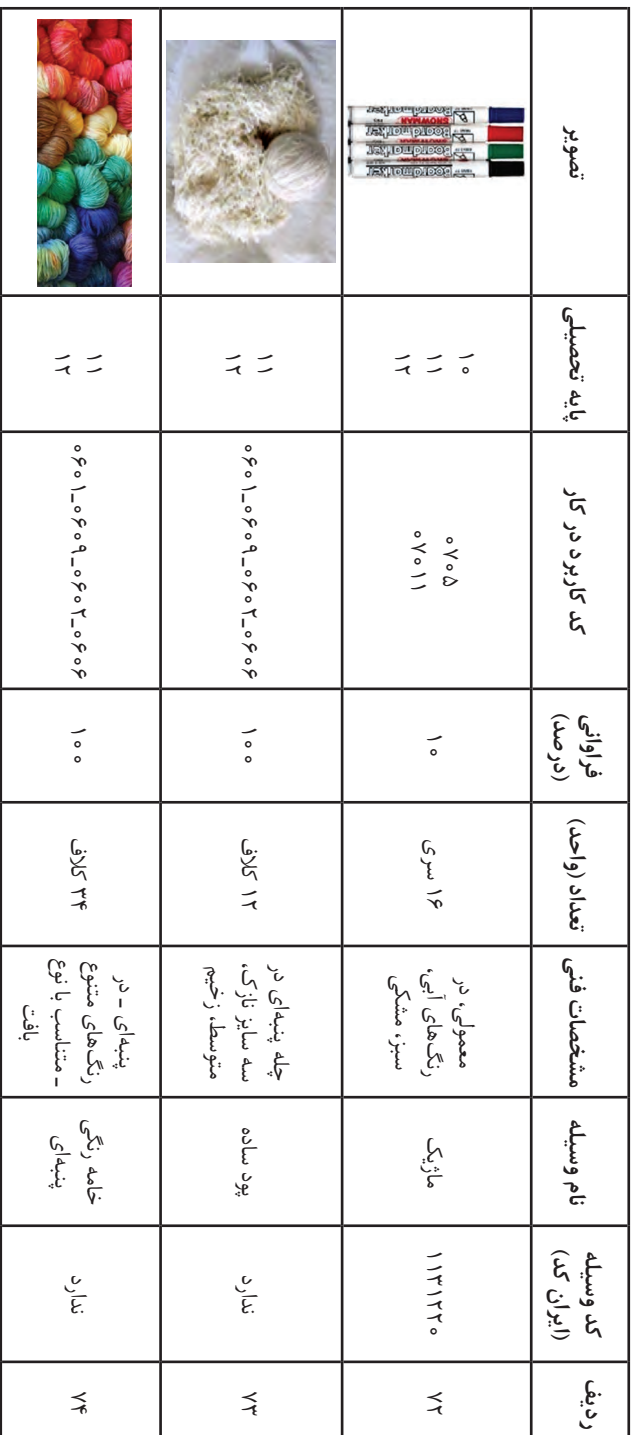 ردیف
کد وسیله
(ایران کد)
نام وسیله
مشخصات فنی
تعداد (واحد)
فراوانی
(درصد)
کد کاربرد در کار
پایه تحصیلی
تصویر
۷۲
۱۱۳۱۲۲۰
ماژیک
معمولی، در
رنگ‌های آبی،
سبز، مشکی
۱۶ سری
۱۰
۰۷۰۵
۰۷۰۱۱
۱۰
۱۱
۱۲
Boardmarker
SNOWMAN
Boardmarker
SNOWMAN
Boardmarker
SNOWMAN
Boardmarker
۷۳
ندارد
پود ساده
چله پنبه‌ای در
سه سایز نازک،
متوسط، زخیم
۱۲ کلاف
۱۰۰
۰۶۰۱_۰۶۰۹_۰۶۰۲_۰۶۰۶
۱۱
۱۲
۷۴
ندارد
خامه رنگی
پنبه‌ای
پنبه‌ای - در
رنگ‌های متنوع
- متناسب با نوع
بافت
۳۴ کلاف
۱۰۰
۰۶۰۱_۰۶۰۹_۰۶۰۲_۰۶۰۶
۱۱
۱۲